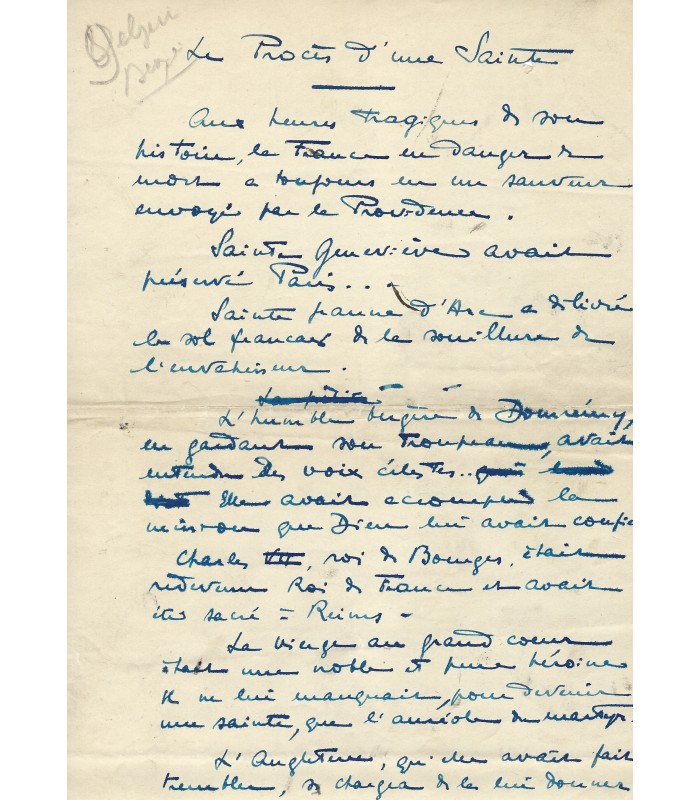 Le Procès d'une Sainte
Aux heures tragiques de son
histoire, la France en danger de
mort a toujours eu un sauveur
envoyé par la Providence.
Sainte Geneviève avait
préservé Paris...
Sainte Jeanne d'Arc a délivré
le sol français de la souillure de
l'envahisseur.
La petite
L'humble bergère de Domrémy,
en gardant son troupeau, avait
entendu des voix célestes..
Elle avait accompli la
mission que Dieu lui avait confié
Charles VII, roi de Bourges, était
redevenu Roi de France et avait
été sacré à Reims -
La vierge au grand coeur
était une noble et pure héroïne
Il ne lui manquait, pour devenir
une sainte, que l'auréole du martyr.
L'Angleterre, qu'elle avait fait
trembler, se chargea de la lui donner